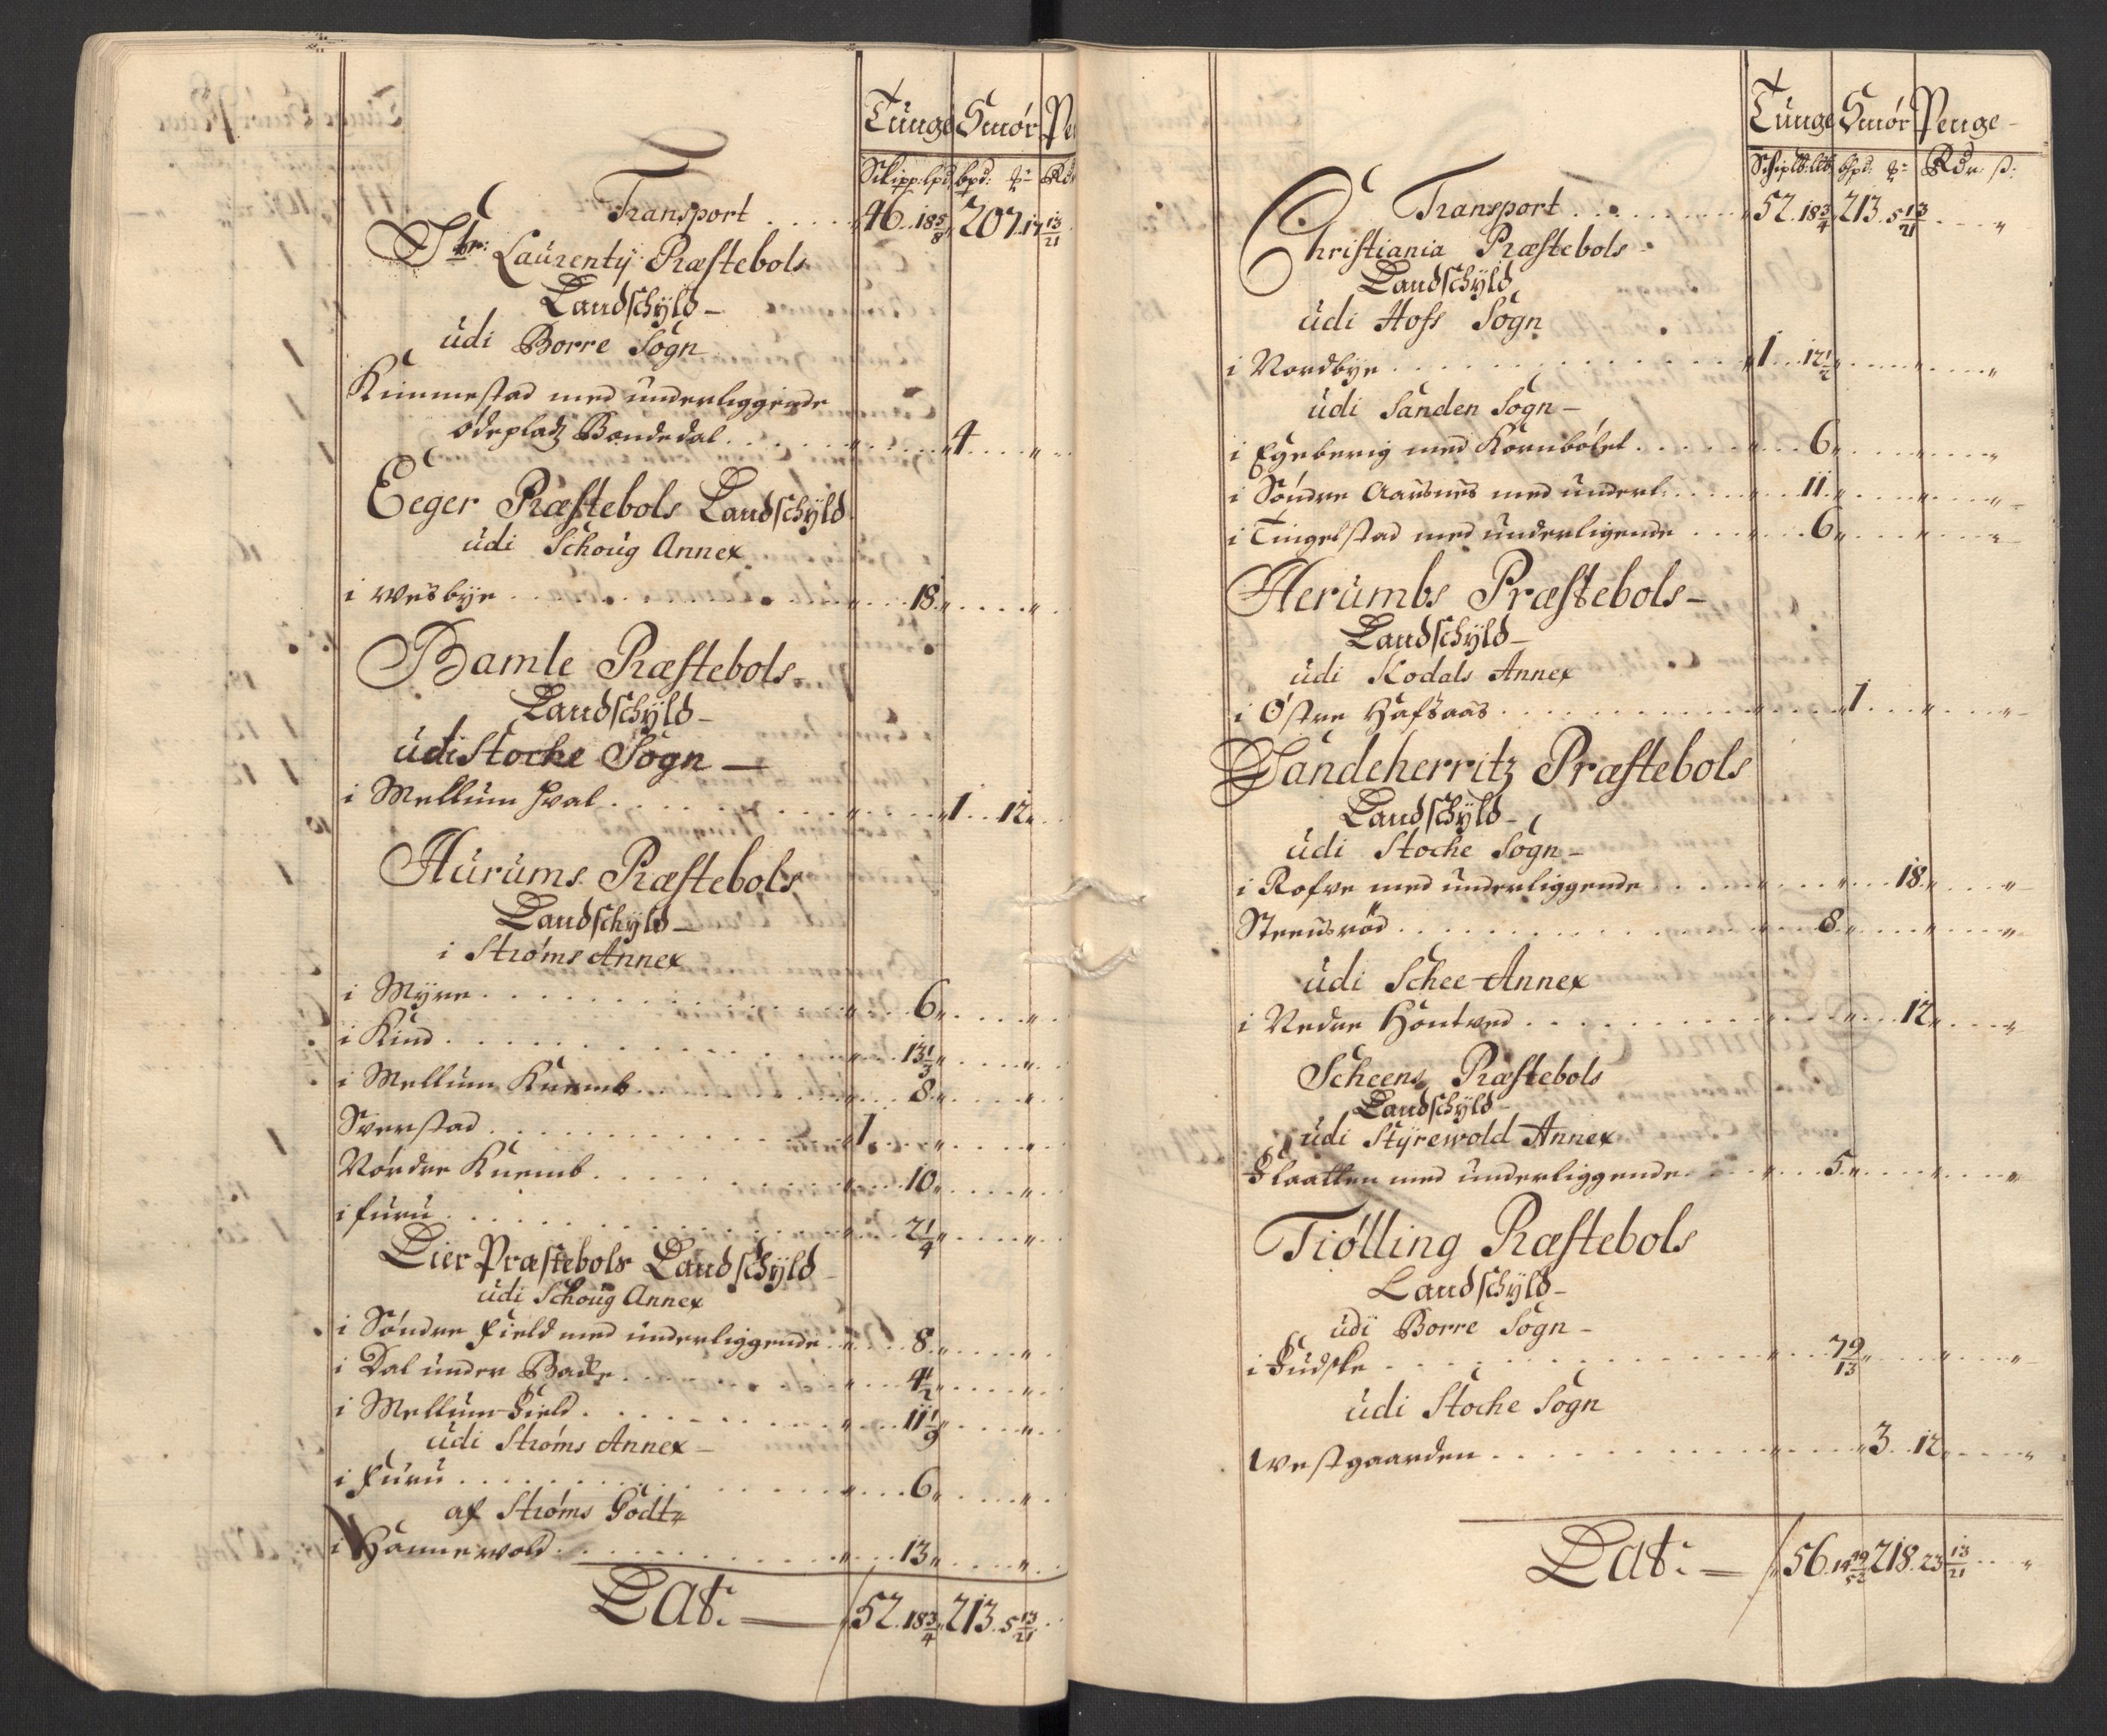 Tunge Smør Pe
Skipp: lpd bpd: Rd
Transport . . . . . 46. 18 5/8 207. 17 13/21
Str: Laurentij Præstebols
Landschÿld –
udi Borre Sogn
Kimmestad med underliggende
ödepladz Bondedal . . . . . " . . . . " 4 . . . . "
Eeger Præstebols Landschÿld
udi Schoug Annex
i Wesbÿe . . . . . " . . . . 18 " . . . . "
Bamle Præstebols –
Landschÿld –
udi Stoche Sogn —
i Mellum Hval . . . . . " . . . . " 1 . . 12 "
Hurums Præstebols
Landschÿld –
i Strøms Annex
i Mÿre . . . . . " . . . . 6 " . . . . "
i Kind . . . . . " . . . . 13 1/3 " . . . . "
i Mellum Knemb . . . . . " . . . . 8 " . . . . "
Sverstad . . . . . " 1 . . . . " . . . . "
Nordre Knemb . . . . . " . . . . 10 " . . . . "
i furu . . . . . " . . . . 2 1/4 " . . . . "
Lier Præstebols Landschÿld –
udi Schoug Annex
i Søndre Field med underliggende . . " . . . . 8 " . . . . "
i Dal under Backe . . . . . " . . . . 4 1/2 " . . . . "
i Mellum-Field . . . . . " . . . . 11 1/9 " . . . . "
udi Strøms Annex –
i Furu . . . . . " . . . . 6 " . . . . "
af Strøms Godtz
i Hannevold . . . . . " . . . . 13 " . . . . "
Lat: — 52. 18 3/4 " 213. 5 13/21
Tunge Smør Penge –
Schipld: lb bpd: Rdr ß:
Transport . . . . . " 52. 18 3/4 213. 5 13/21 . . . . "
Christiania Præstebols –
Landschÿld
udi Hofs Sogn
i Nordbÿe . . . . . " 1 . . 12 1/2 " . . . . " . . . . "
udi Sanden Sogn –
i Egeberig med Kornbölet . . . . . " . . . . 6 " . . . . " . . . . "
i Söndre Aarsnes med underl: . . . . . " . . . . 11 " . . . . " . . . . "
i Tingelstad med underligende . . . " . . . . 6 " . . . . " . . . . "
Herumbs Præstebols –
Landschÿld –
udi Kodals Annex
i Östre Hafsaas . . . . . " . . . . " 1 . . . . " . . . . "
Sandeherritz Præstebols
Landschÿld –
udi Stoche Sogn –
i Rofve med underliggende . . . . . " . . . . " . . . 18 " . . . . "
Steensröd . . . . . " . . . . 8 " . . . . " . . . . "
udi Schee Annex
i Nedre Hontved . . . . . " . . . . " . . . 12 " . . . . "
Scheens Præstebols
Landschÿld –
udi Stÿrewold Annex
Flaatten med underliggende . . . " . . . . 5 " . . . . " . . . . "
Tiølling Præstebols
Landschÿld –
udi Borre Sogn –
i Fudske . . . . . " . . . . 7 9/13 " . . . . " . . . . "
udi Stoche Sogn
Westgaarden . . . . . " . . . . " 3 . . 12 " . . . . "
Lat: = 56. 14 49/52 218. 23 13/21 . . . . "